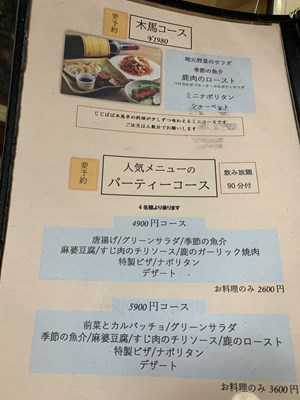 要予約
木馬コース
¥1980
地元野菜のサラダ
季節の魚介
鹿肉のロースト
ミニナポリタン
シャーベット
ご注文は人数分でお願いします
要予約
人気メニューの
パーティーコース
飲み放題
90分付
4名様より承ります
4900円コース
唐揚げ/グリーンサラダ/季節の魚介
麻婆豆腐/すじ肉のチリソース/鹿のガーリック焼肉
特製ピザ/ナポリタン
デザート
お料理のみ 2600円
5900円コース
前菜とカルパッチョ/グリーンサラダ
季節の魚介/麻婆豆腐/すじ肉のチリソース/鹿のロースト
特製ピザ/ナポリタン
デザート
お料理のみ 3600円